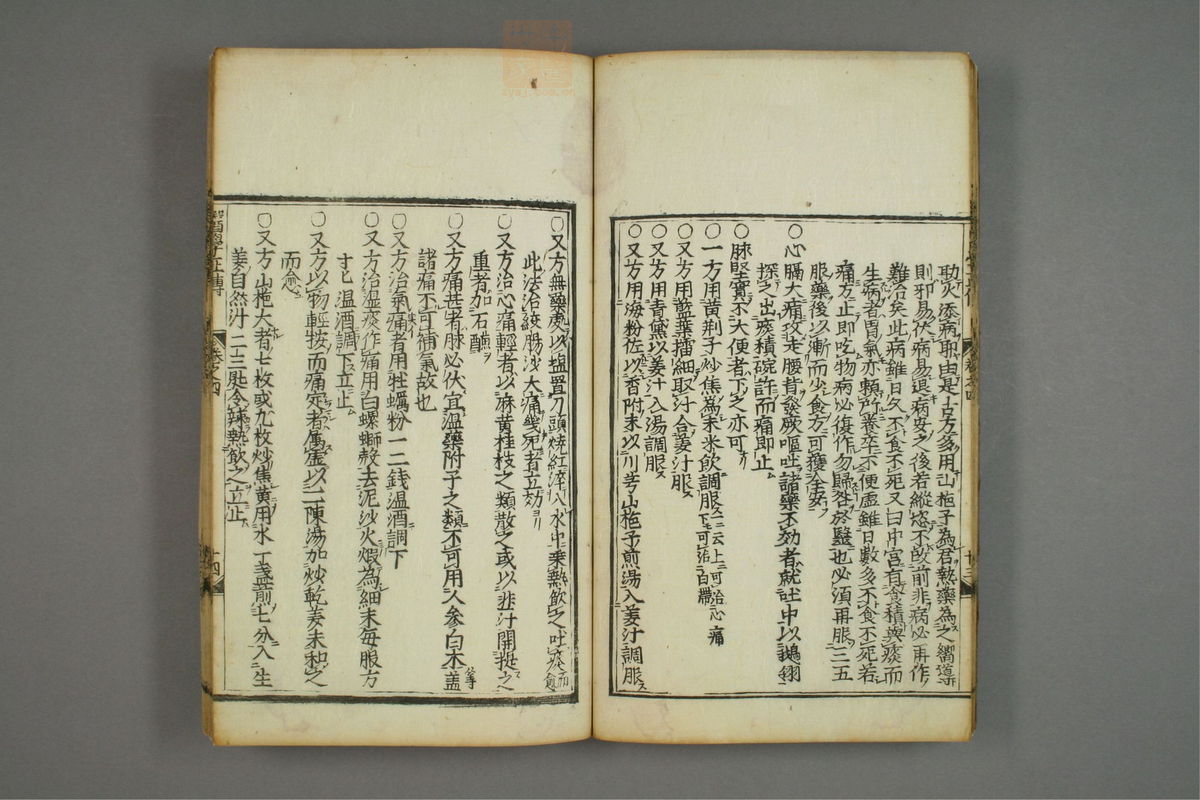 助火添病耶由是古方多用山梔子為君熱藥為之嚮導
則邪易伏病易退病安之後若縱恣不改前非病必再作
難治矣此病雖日久不食不死又曰中宮有食積與痰而
生病者胃氣亦賴所養卒不便虛雖日數多不食不死若
痛方止即吃物病必復作勿歸咎於醫也必須再服二五
服藥後以漸而少食方可獲全安
○心膈大痛攻走腰背發厥嘔吐諸藥不効者就吐中以鵝翎
探之出痰積碗許而痛即止
○脉堅實不大便者下之亦可
○一方用黄荆子炒焦為末米飲調服 云上可治心痛下可治白帶
○又方用藍葉擂細取汁合姜汁服
○又方用青黛以姜汁入湯調服
○又方用海粉佐以香附末以川芎山梔子煎湯入姜汁調服
○又方無藥處以塩置刀頭燒紅淬入水中乗熱飲之吐痰而愈
此法治絞腸沙大痛幾死者立効
○又方治心痛輕者以麻黄桂枝之類散之或以韭汁開提之
重者加石
○又方痛甚者脉必伏宜温藥附子之類不可用人參白术盖
諸痛不可補氣故也
○又方治氣痛者用牡蠣粉一二錢温酒調下
○又方治濕痰作痛用白螺螄殻去泥沙火煅為細末每服方
寸匕温酒調下立止
○又方以物輕按而痛定者属虛以二陳湯加炒乾姜末和之
而愈
○又方山梔大者七枚或九枚炒焦黄用水一盞煎七分入生
姜自然汁二三匙令辣熱飲之立止
醫學正傳
卷之四
十四